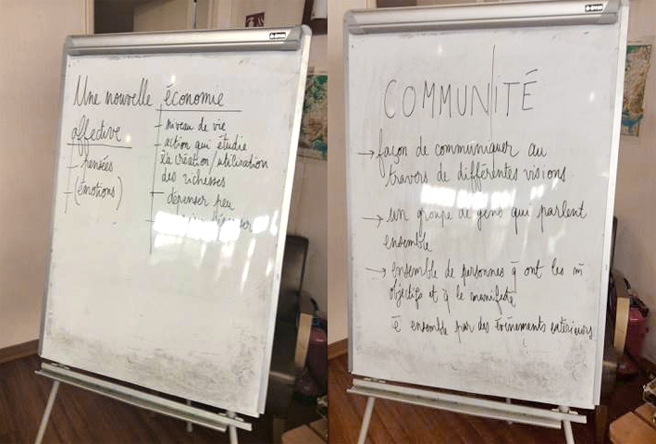 Une nouvelle économie
affective
- pensées
- (émotions)
- niveau de vie
- action qui étudie
la création/utilisation
des richesses
- dépenser peu
COMMUNITÉ
→ façon de communiquer au
travers de différentes visions
→ un groupe de gens qui parlent
ensemble
→ ensemble de personnes q̄ ont les m̄
objectifs et q̄ le manifeste
ē ensemble par des évènements extérieurs